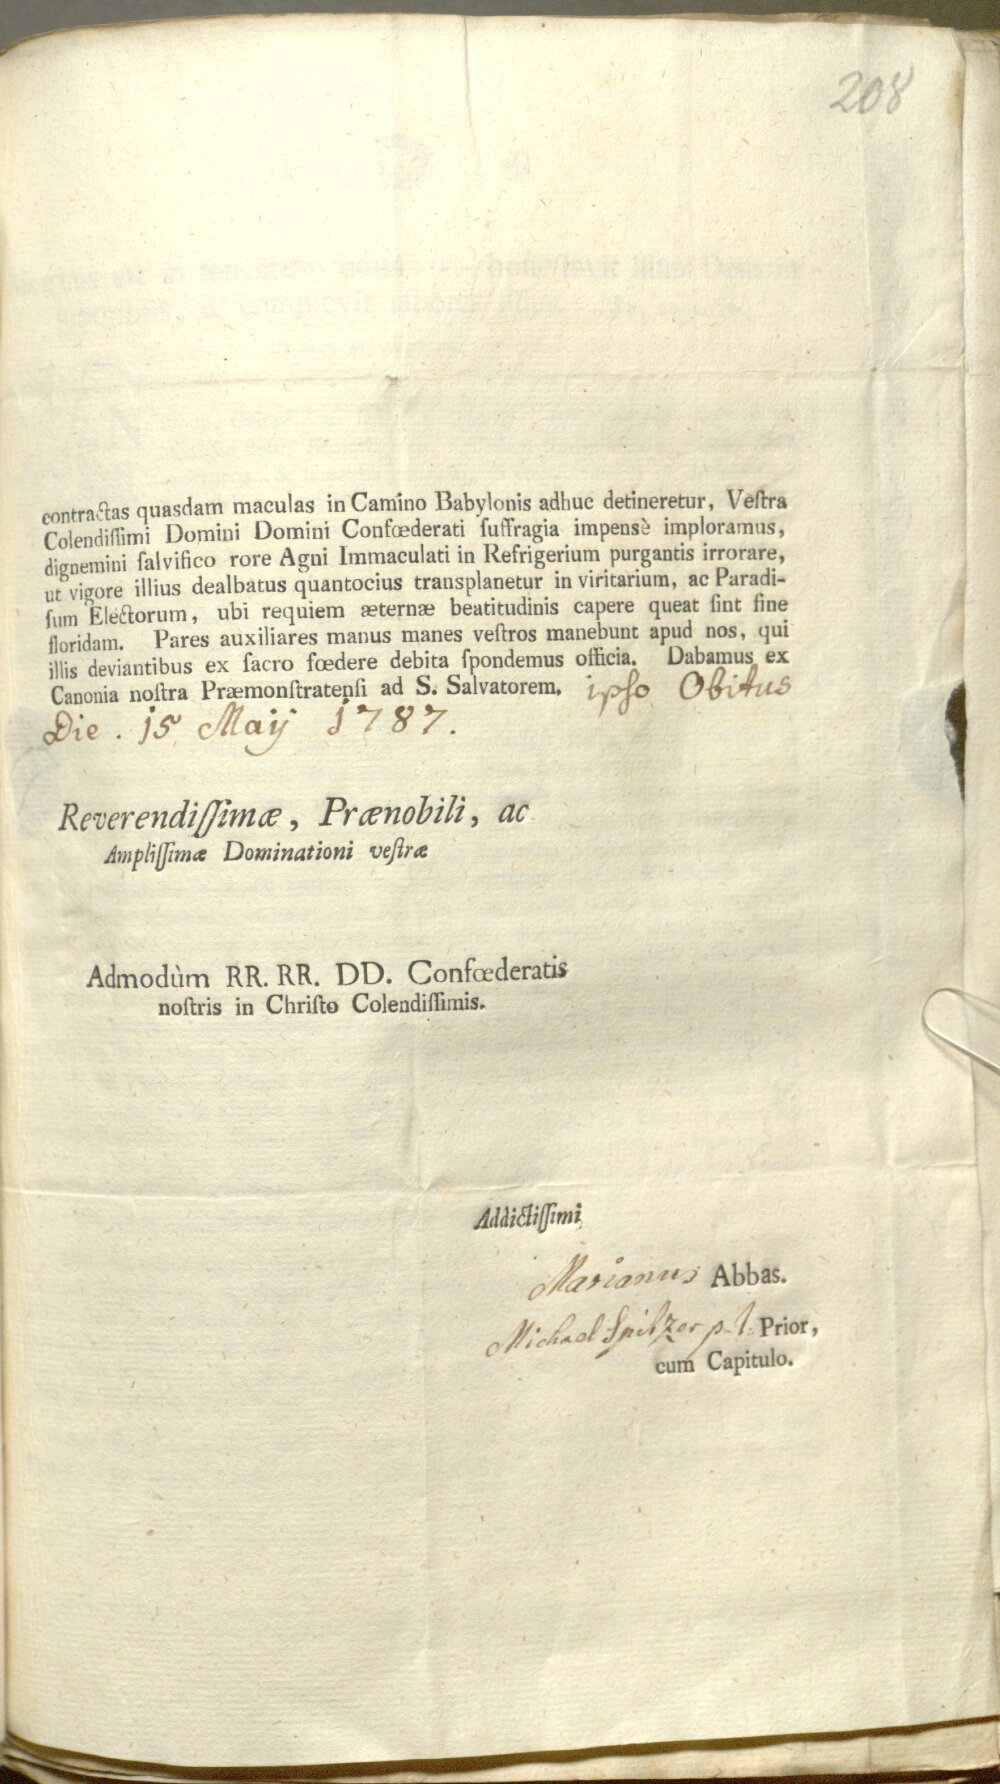 208
contractas quasdam maculas in Camino Babylonis adhuc detineretur, Veſtra
Colendiſſimi Domini Domini Confœderati ſuffragia impensè imploramus,
dignemini ſalvifico rore Agni Immaculati in Refrigerium purgantis irrorare,
ut vigore illius dealbatus quantocius transplanetur in viritarium, ac Paradi-
ſum Electorum, ubi requiem æternæ beatitudinis capere queat ſint fine
floridam. Pares auxiliares manus manes veſtros manebunt apud nos, qui
illis deviantibus ex ſacro fœdere debita ſpondemus officia. Dabamus ex
Canonia noſtra Præmonſtratenſi ad S. Salvatorem. ipso Obitus
Die . 15 Maij 1787.
Reverendiſſimæ, Prænobili, ac
Ampliſſimæ Dominationi veſtræ
Admodùm RR. RR. DD. Confœderatis
noſtris in Chriſto Colendiſſimis.
Addictiſſimi
Marianus Abbas.
Michael Spilzer p. t. Prior,
cum Capitulo.